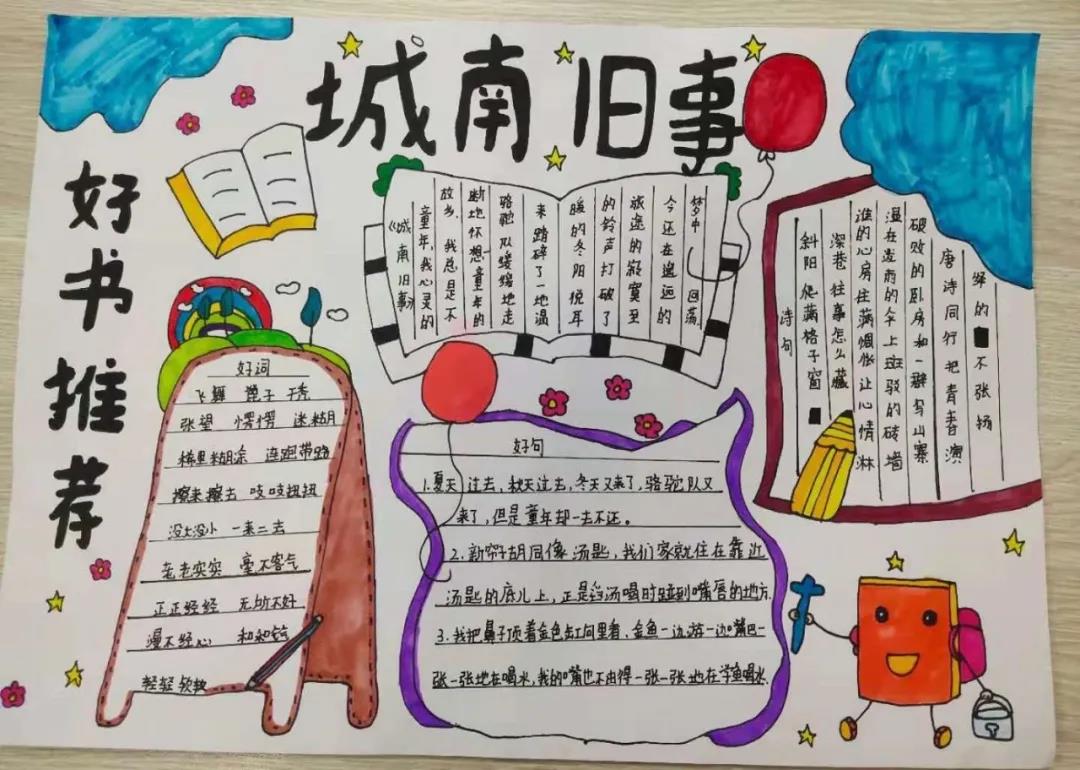 城南旧事
好书推荐
梦中 回荡
今还在遥远的
旅途的寂寞至
的铃声打破了
暖的冬阳 悦耳
来 踏碎了一地温
骆驼队缓缓地走
断地怀想童年的
故乡，我总是不
童年，我心灵的
《城南旧事》
的 不张扬
唐诗同行 把青春演
破败的卧房和一群乌山寨
湿在凌雨的今上斑驳的砖墙
谁的心房住满惆怅 让心情淋
深巷往事怎么藏
斜阳爬满格子窗
诗句
好词
飞舞 篦子
张望 愣愣 迷糊
稀里糊涂 连跑带
擦来擦去 吱吱扭扭
没大没小 一来二去
老老实实 毫不客气
正正经经
漫不经心
轻轻
好句
1.夏天过去，秋天过去，冬天又来了，骆驼队又
来了，但是童年却一去不还。
2.新帘胡同像汤匙，我们家就住在靠近
汤匙的底儿上，正是舀汤喝时碰到嘴唇的地方.
3.我把鼻子顶着金色缸向里看，金鱼一边游一边嘴巴一
张一张地在喝水，我的嘴也不由得一张一张地在学鱼喝水.